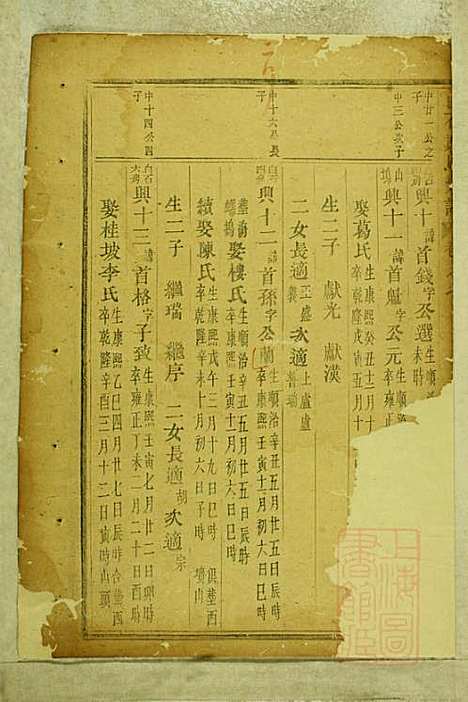 中廿一公之子
興十諱首錢字公選生順
未時
中三公次子
興十一諱首嶇字公元生順
卒
娶葛氏生康熙癸丑十二月
卒乾隆戊寅五月十
生二子 獻光 獻漢
二女長適王盛 次適上盧盧
中十六公長子
興十二諱首孫字公蘭生順治辛丑五月廿五日辰時
卒康熙壬寅十二月初六日巳時
娶樓氏生順治辛丑五月廿五日辰時
卒康熙壬寅十二月初六日巳時
續娶陳氏生康熙戊午三月十九日巳時 俱塟西
卒乾隆辛未十月初六日子時
生二子 繼瑞 繼序 二女長適胡 次適宗
中十四公四子
興十三諱首格字子致生康熙壬寅七月廿二日卯時
卒雍正丁未二月二十日酉時
娶桂坡李氏生康熙乙巳四月廿七日辰時合塟西
卒乾隆辛酉三月十二日寅時山頭
上海圖書館藏